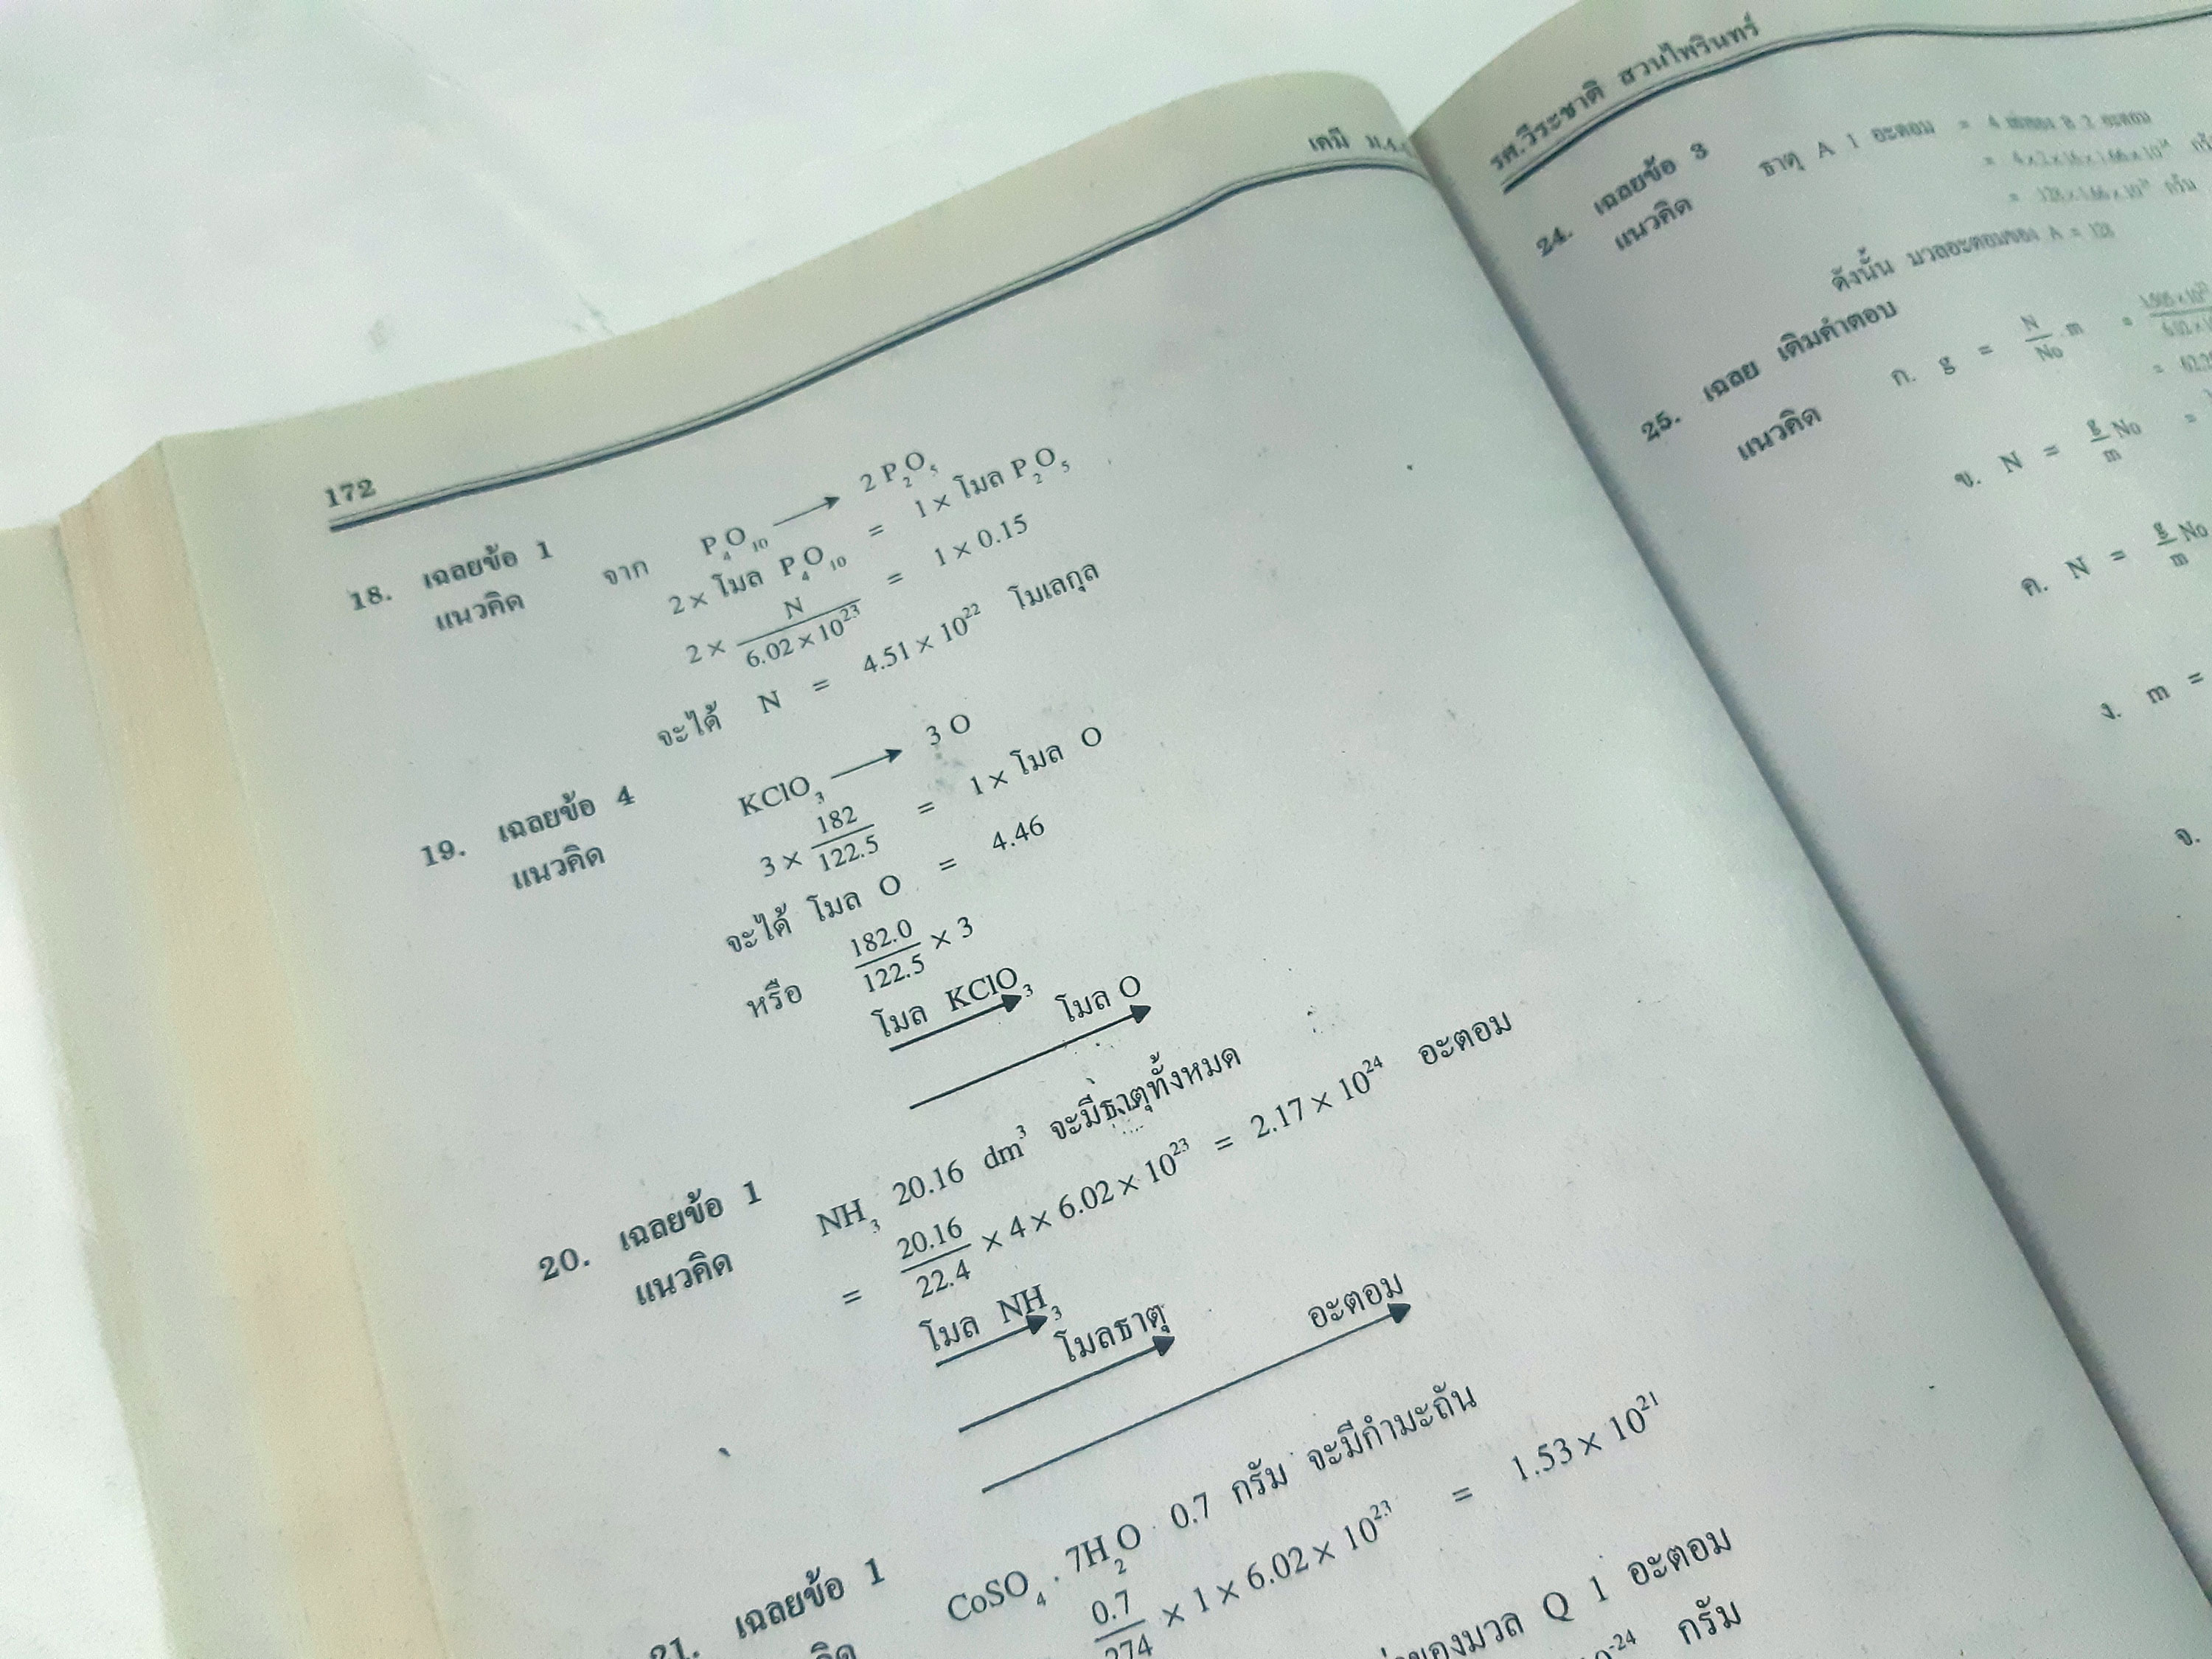 172
เคมี ม.4
18. เฉลยข้อ 1
แนวคิด จาก P₄O₁₀ → 2 P₂O₅
2 × โมล P₄O₁₀ = 1 × โมล P₂O₅
2 × N/6.02 × 10²³ = 1 × 0.15
จะได้ N = 4.51 × 10²² โมเลกุล
19. เฉลยข้อ 4
แนวคิด KClO₃ → 3 O
3 × 182/122.5 = 1 × โมล O
จะได้ โมล O = 4.46
หรือ 182.0/122.5 × 3
โมล KClO₃
โมล O
20. เฉลยข้อ 1
แนวคิด NH₃ 20.16 dm³ จะมีธาตุทั้งหมด
= 20.16/22.4 × 4 × 6.02 × 10²³ = 2.17 × 10²⁴ อะตอม
โมล NH₃
โมลธาตุ
อะตอม
21. เฉลยข้อ 1
CoSO₄ . 7H₂O 0.7 กรัม จะมีกำมะถัน
0.7/274 × 1 × 6.02 × 10²³ = 1.53 × 10²¹
ของมวล Q 1 อะตอม
⁻²⁴ กรัม
รศ.วีระชาติ สวนไพรินทร์
24. เฉลยข้อ 3
แนวคิด ธาตุ A 1 อะตอม = 4 เท่าของ B 2 อะตอม
= 4×2×16×1.66×10⁻²⁴
= 128×1.66×10⁻²⁴ กรัม
ดังนั้น มวลอะตอมของ A = 128
25. เฉลย เติมคำตอบ
แนวคิด ก. g = N/No . m =
ข. N = g/m No =
ค. N = g/m No
ง. m =
จ.